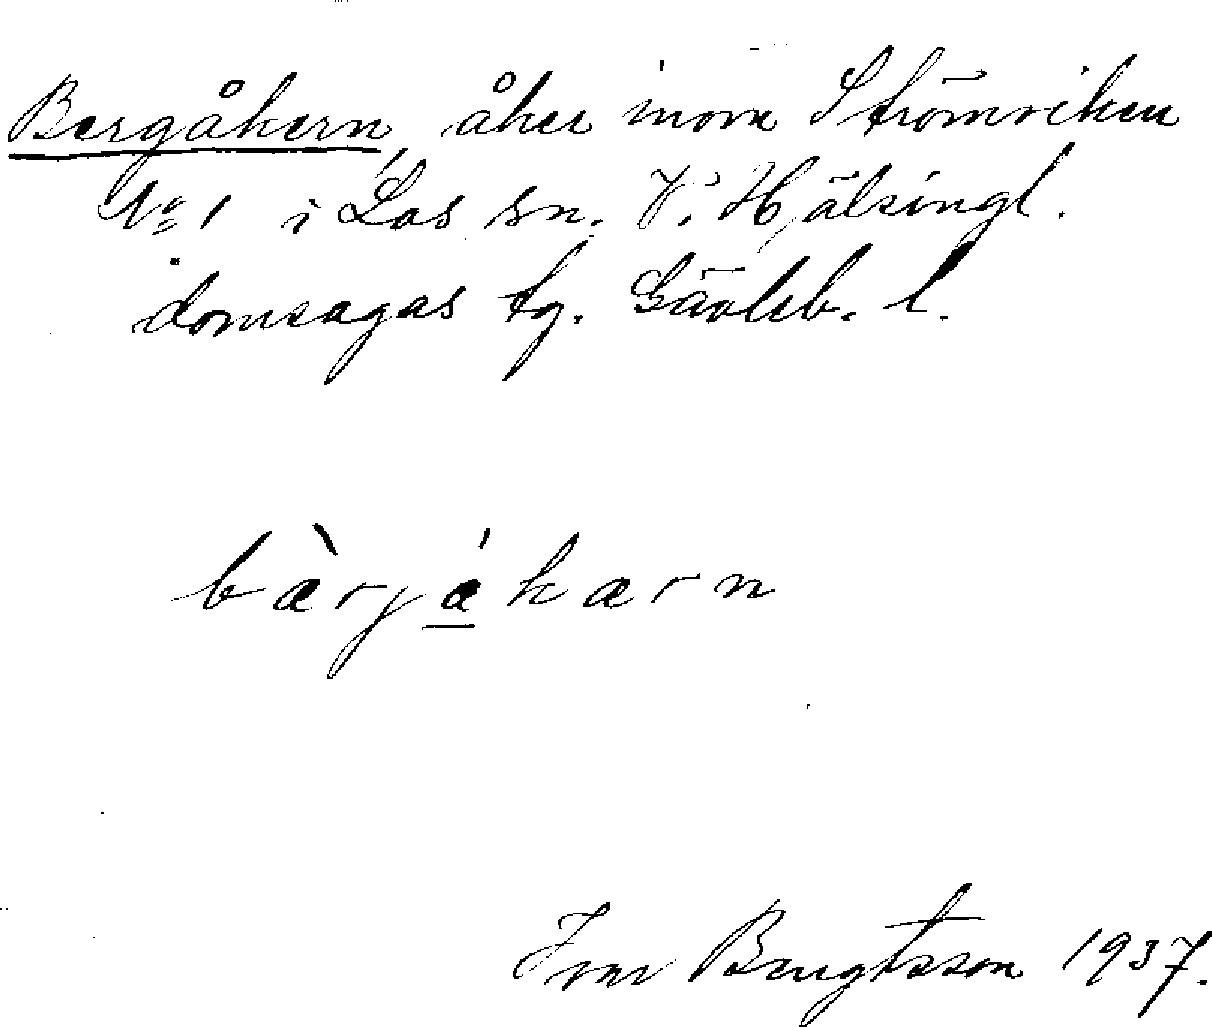 Bergåkern, åker inom Strömviken
No 1 i Los sn. V. Hälsingl.
domsagas tg. Gävleb. l.
bàrjákarn
Bengtsson 1937.